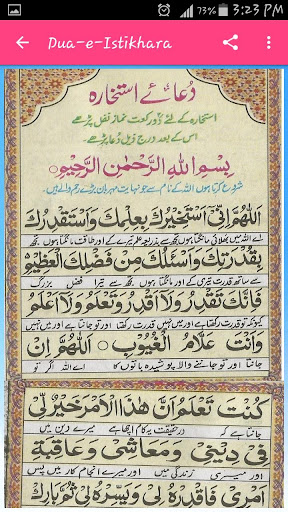 73% 3:23 PM
Dua-e-Istikhara
دُعائے استخارہ
استخارہ کے لئے دو رکعت نماز نفل پڑھے
اس کے بعد درج ذیل دعا پڑھے۔
بِسْمِ اللهِ الرَّحْمٰنِ الرَّحِيْمِ
شروع کرتا ہوں اللہ کے نام سے جو نہایت مہربان بڑے رحم والے ہیں۔
اَللّٰهُمَّ اِنِّیْ اَسْتَخِیْرُكَ بِعِلْمِكَ وَاَسْتَقْدِرُكَ
اے اللہ میں بھلائی مانگتا ہوں تجھ سے بذریعہ علم تیرے کے اور طاقت مانگتا ہوں تجھ
بِقُدْرَتِكَ وَاَسْئَلُكَ مِنْ فَضْلِكَ الْعَظِیْمِ
سے ساتھ قدرت تیری کے اور مانگتا ہوں تجھ سے تیرا فضل بزرگ
فَاِنَّكَ تَقْدِرُ وَلَآ اَقْدِرُ وَتَعْلَمُ وَلَآ اَعْلَمُ
کیونکہ تو قدرت رکھتا ہے اور نہیں میں قدرت رکھتا اور تو جانتا ہے اور میں نہیں
وَاَنْتَ عَلَّامُ الْغُیُوْبِ ○ اَللّٰهُمَّ اِنْ
جانتا اور تو جاننے والا پوشیدہ باتوں کا اے اللہ اگر تو
كُنْتَ تَعْلَمُ اَنَّ هٰذَا الْاَمْرَ خَیْرٌ لِّیْ
جانتا ہے کہ درحقیقت یہ کام اچھا ہے میرے دین میں
فِیْ دِیْنِیْ وَمَعَاشِیْ وَعَاقِبَةِ
اور میری زندگی میں اور میرے انجام کار میں پس
اَمْرِیْ فَاقْدِرْهُ لِیْ وَیَسِّرْهُ لِیْ ثُمَّ بَارِكْ